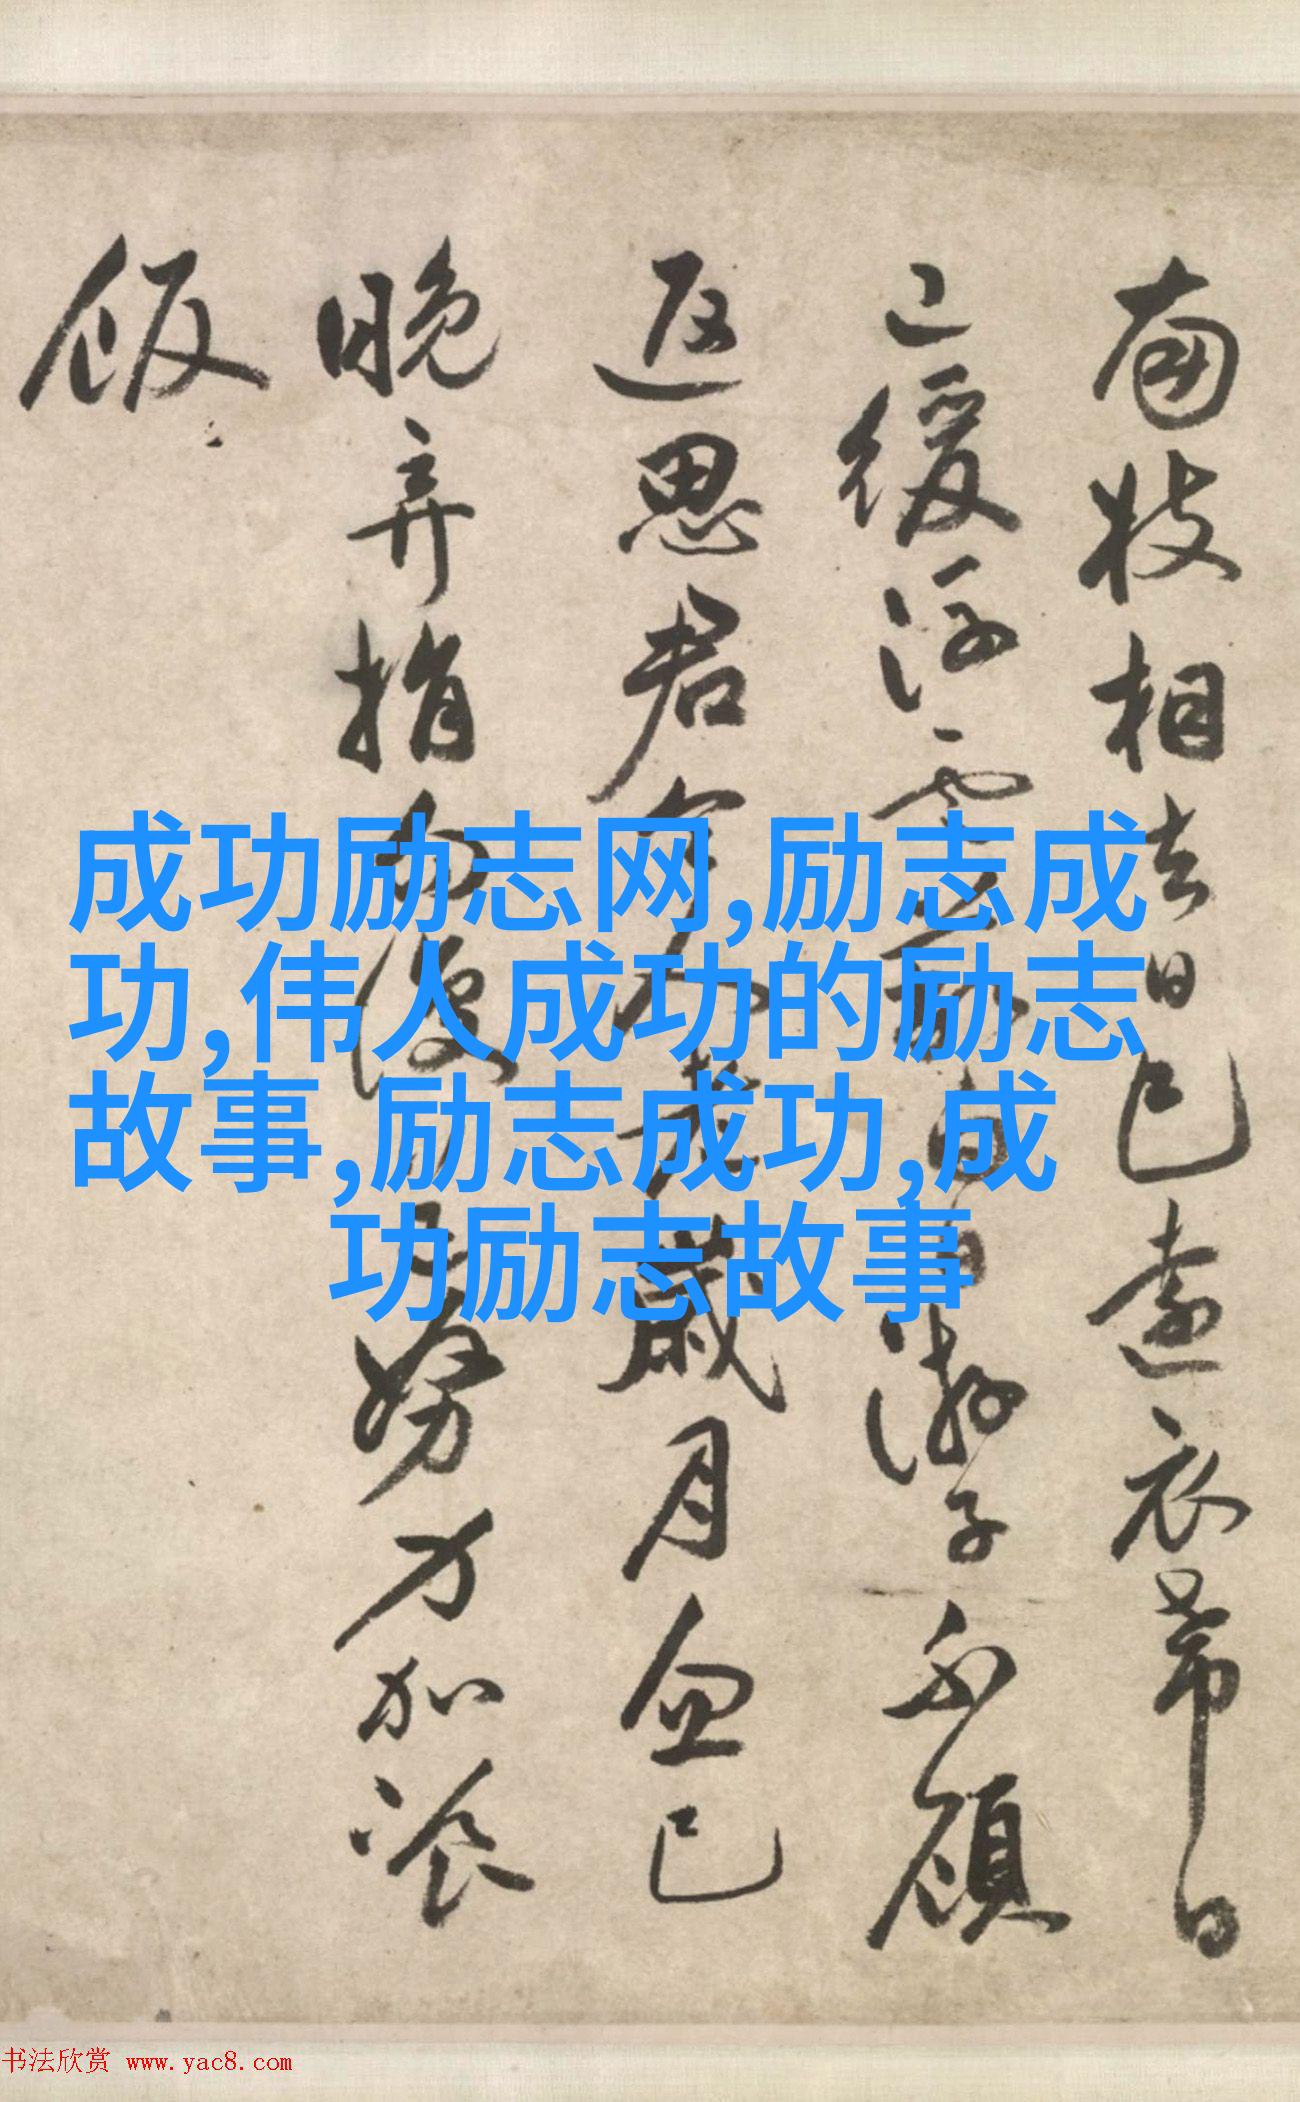 南枝相去日已遠衣帶日
已緩浮雲蔽白日游子不顧
返思君令人老歲月忽已
晚弃捐勿復道努力加飡
飯
成功励志网,励志成
功,伟人成功的励志
故事,励志成功,成
功励志故事
书法欣赏 www.yac8.com